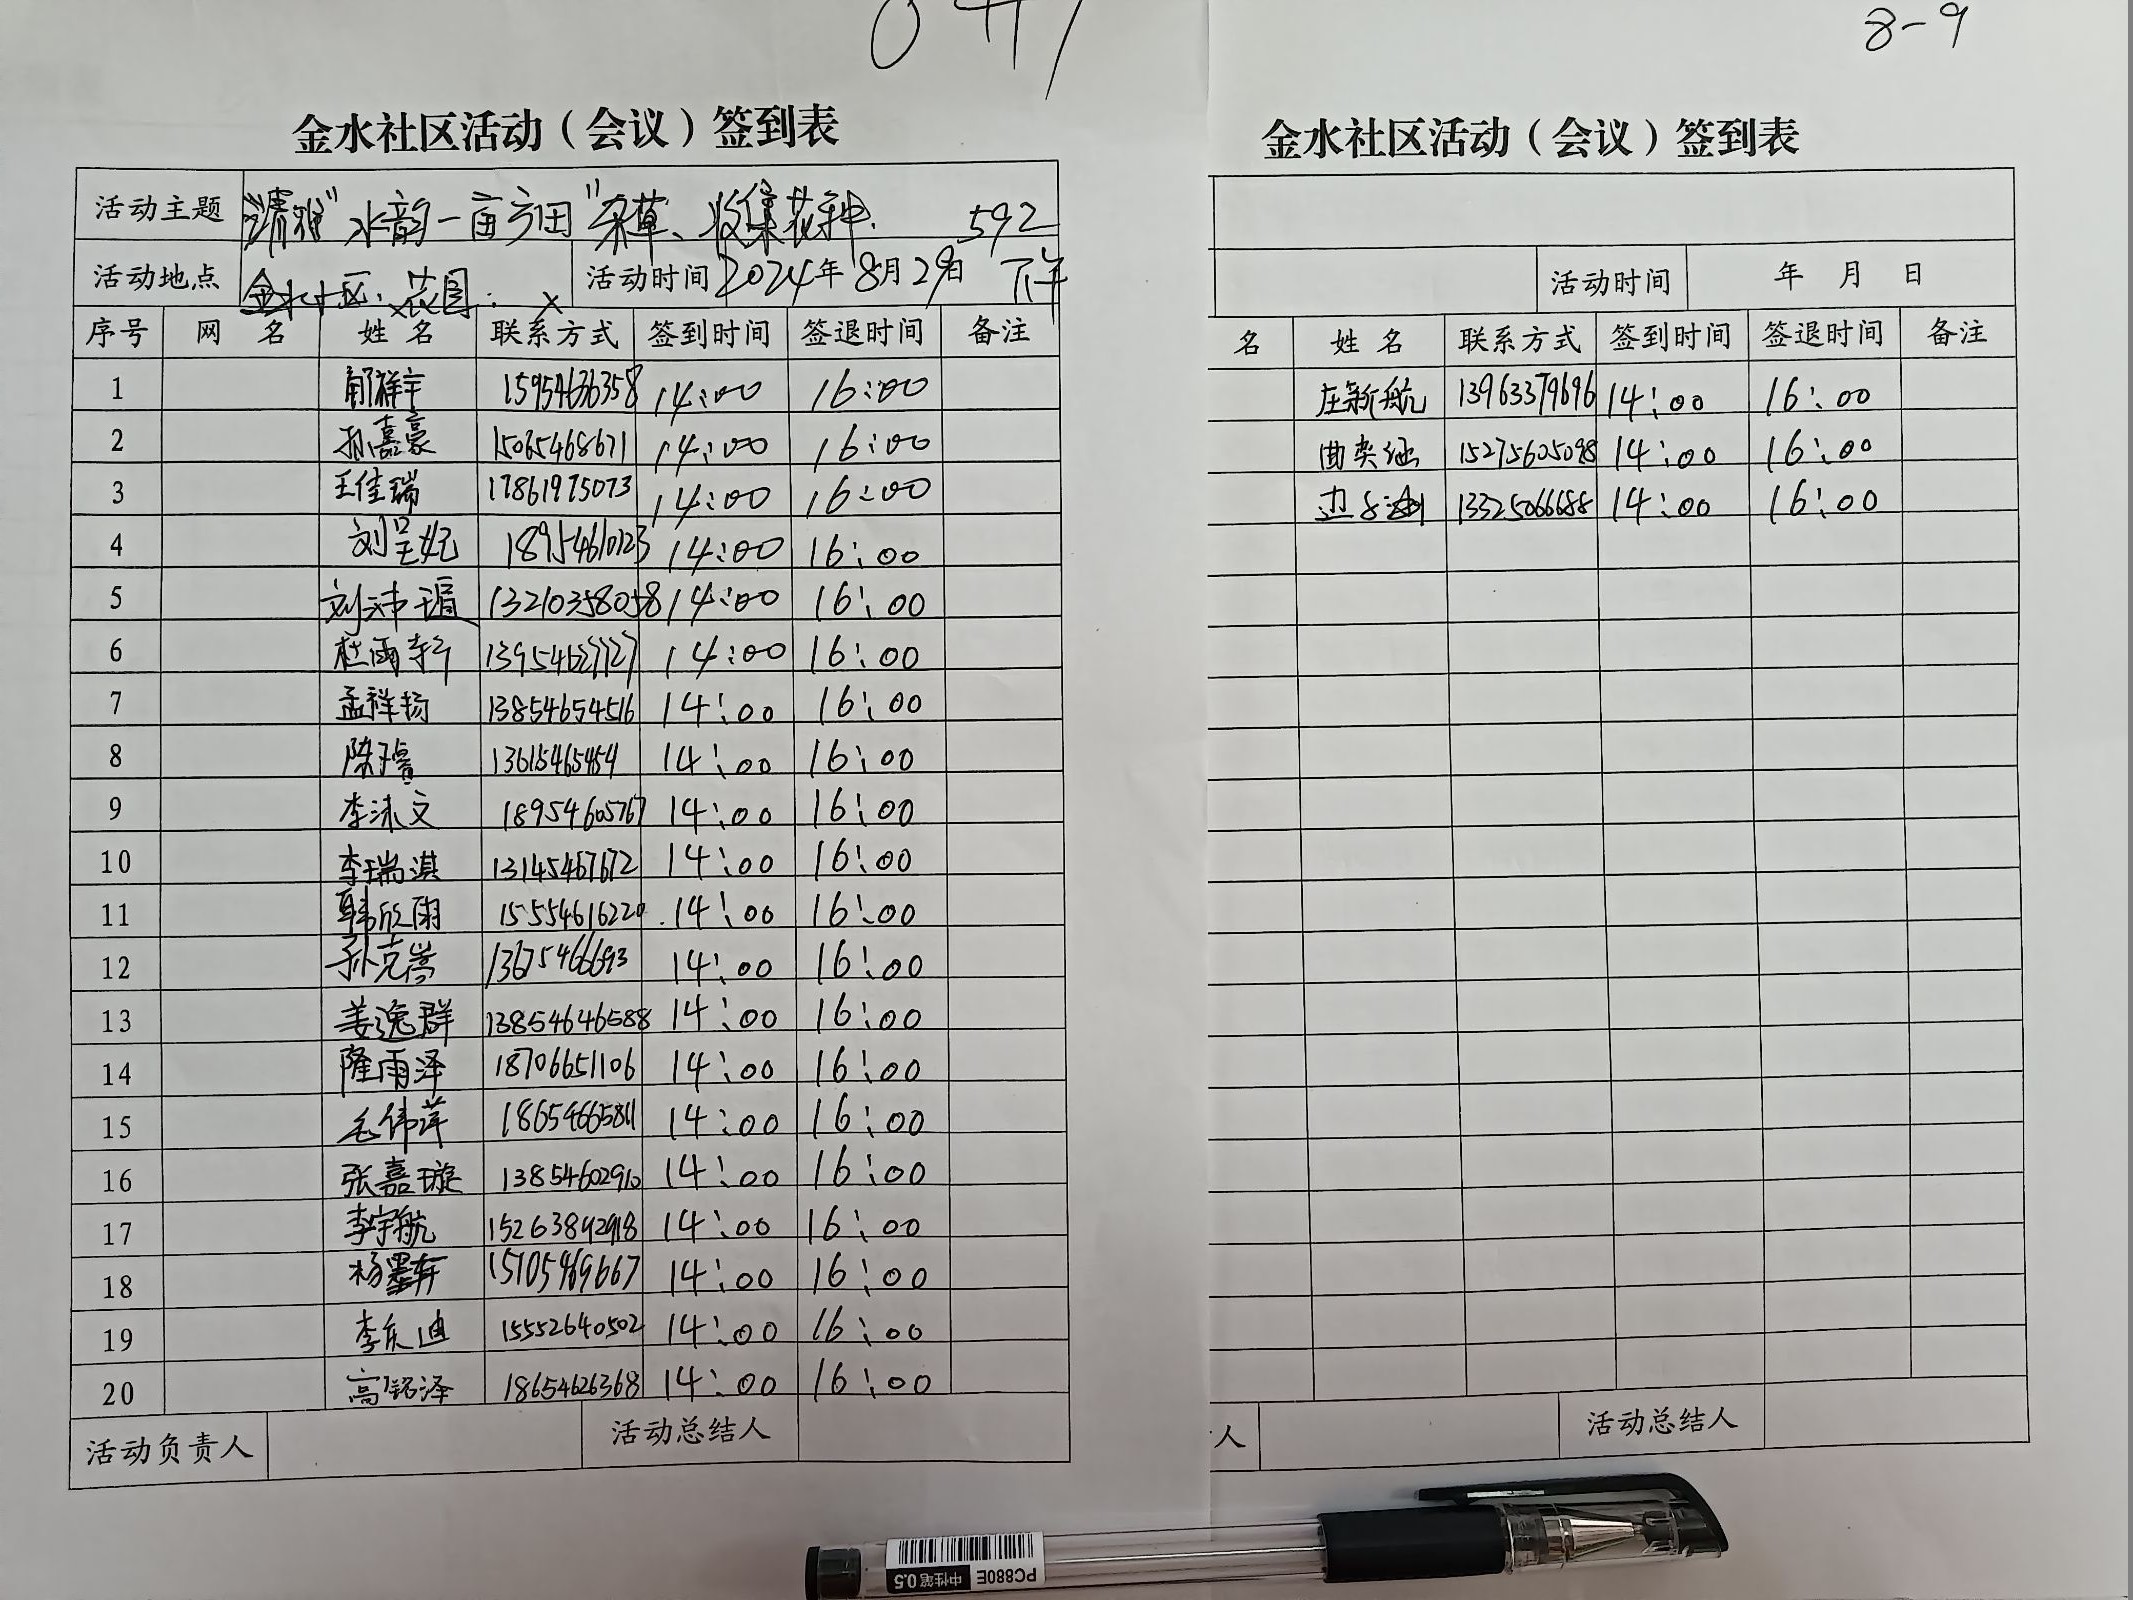 8-9
金水社区活动（会议）签到表
活动主题 "清雅"水韵一亩方田"杂草、收集花种. 592
活动地点 金水社区.花园. 活动时间 2024年8月29日 下午
序号 网 名 姓 名 联系方式 签到时间 签退时间 备注
1 祥宇 15954636358 14:00 16:00
2 孙嘉豪 15065468671 14:00 16:00
3 王佳瑞 17861975073 14:00 16:00
4 刘呈妃 18954610123 14:00 16:00
5 刘沛瑶 13210358058 14:00 16:00
6 杜雨轩 13954627727 14:00 16:00
7 孟祥扬 13854654516 14:00 16:00
8 陈瑾 13615465454 14:00 16:00
9 李沫文 18954605767 14:00 16:00
10 李瑞淇 13145467672 14:00 16:00
11 韩欣雨 15554616220 14:00 16:00
12 孙克嵩 13675466693 14:00 16:00
13 姜逸群 13854646588 14:00 16:00
14 隆雨泽 18706651106 14:00 16:00
15 毛伟萍 18654665811 14:00 16:00
16 张嘉璇 13854602910 14:00 16:00
17 李宇航 15263892918 14:00 16:00
18 杨墨轩 15105469667 14:00 16:00
19 李庆迪 15552640502 14:00 16:00
20 高铭泽 18654626368 14:00 16:00
活动负责人 活动总结人
金水社区活动（会议）签到表
活动时间 年 月 日
名 姓 名 联系方式 签到时间 签退时间 备注
庄新航 13963379696 14:00 16:00
曲奕涵 15275605098 14:00 16:00
边 13325066688 14:00 16:00
人 活动总结人
PC880E
中性笔0.5